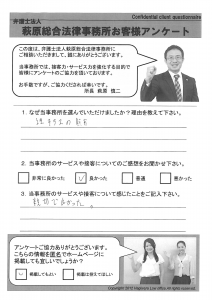 Confidential client questionnaire
弁護士法人
萩原総合法律事務所お客様アンケート
この度は、弁護士法人萩原総合法律事務所に
ご相談いただきまして、誠にありがとうございます。
当事務所では、接客力・サービス力を強化する目的で
皆様にアンケートのご協力を頂いております。
お手数ですが、ご協力くだされば幸いです。
所長 萩原 慎二
1. なぜ当事務所を選んでいただけましたか？理由を教えて下さい。
2. 当事務所のサービスや接客についてのご感想をお聞かせ下さい。
非常に良かった
良かった
普通
悪かった
3. 当事務所のサービスや接客について感じたことをご記入下さい。
アンケートご協力ありがとうございます。
こちらの情報を匿名でホームページに
掲載しても宜しいでしょうか？
掲載してもよい
掲載は控えてほしい